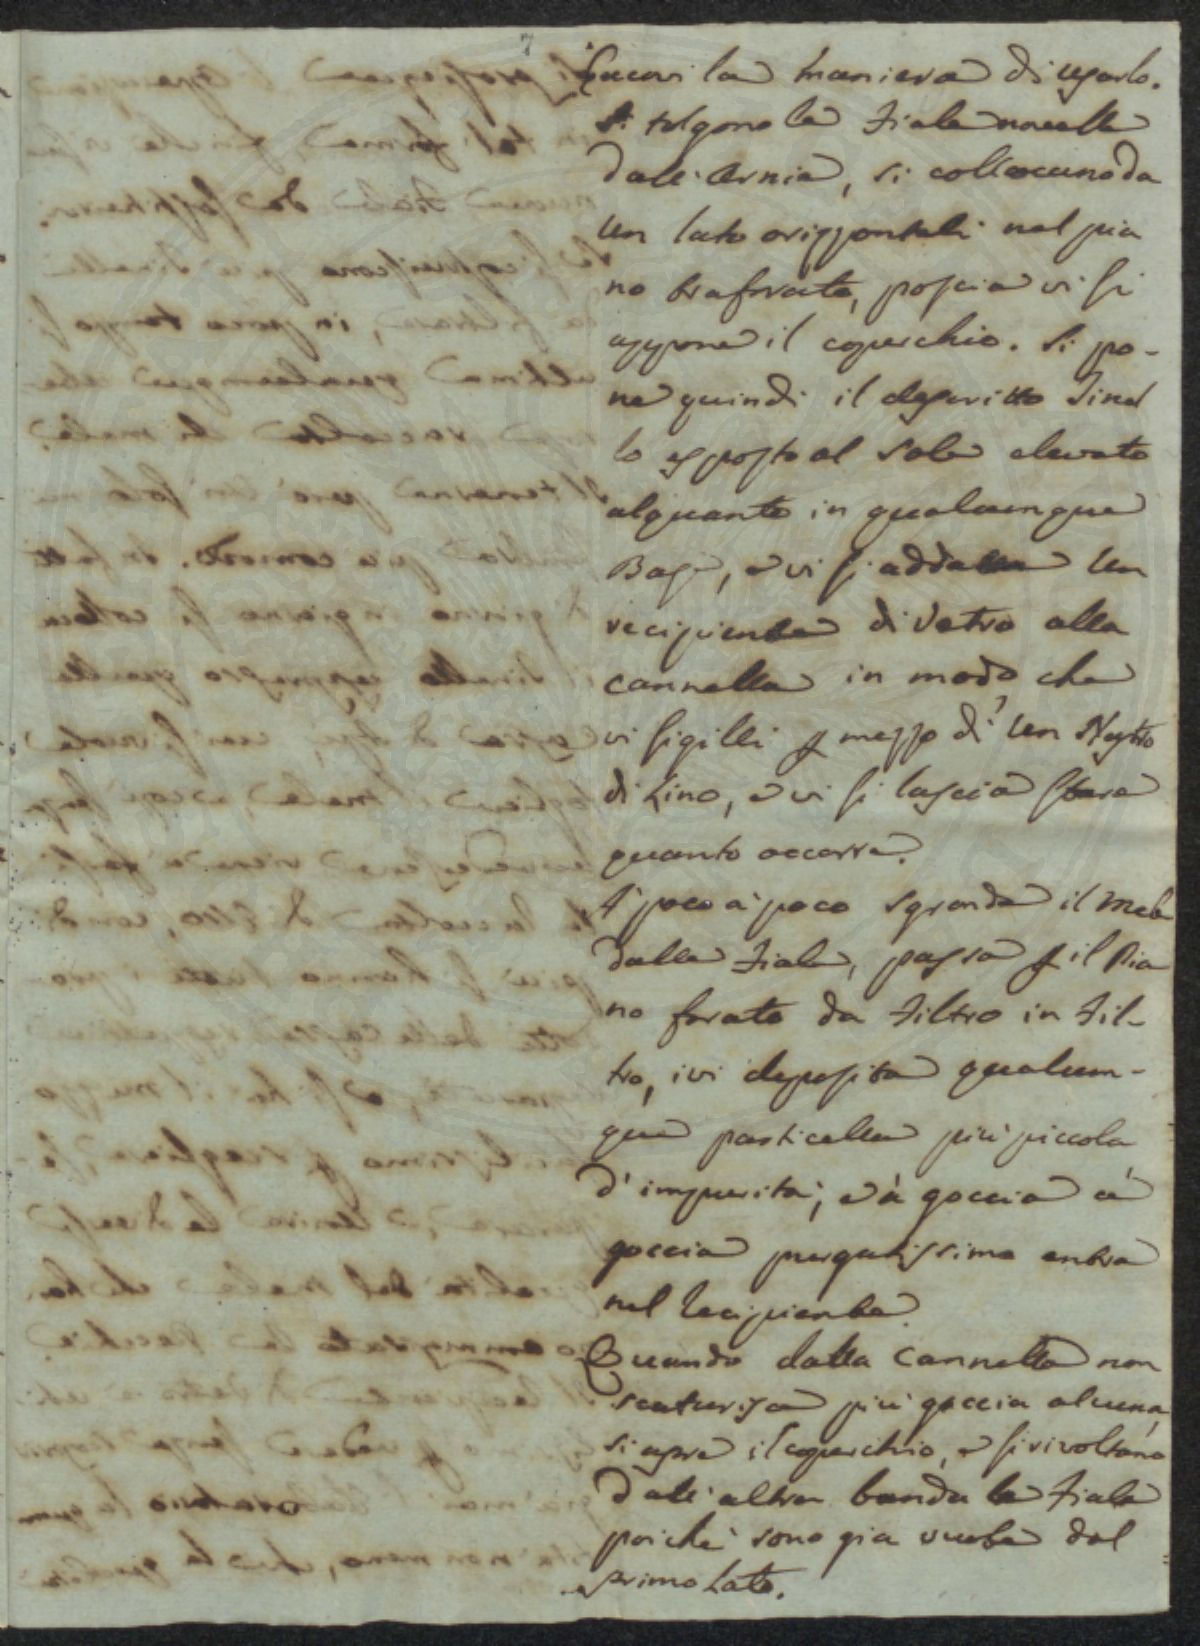 7
Eccovi la maniera di usarlo.
Si tolgono le Fiale novelle
dall'Arnia, si collocano da
un lato orizzontali nel pia
no traforato, poscia vi si
appone il coperchio. Si po-
ne quindi il descritto Tinel
lo esposto al Sole elevato
alquanto in qualunque
Base, e vi si addatta un
recipiente di Vetro alla
cannella in modo, che
vi sigilli p mezzo di un Nastro
di Lino, e vi si lascia stare
quanto occorre.
A' poco a' poco sgronda il Mele
dalle Fiale, passa p il Pia
no forato da Filtro in Fil-
tro, ivi deposita qualun-
que particella più piccola
d'impurità, e à goccia a'
goccia purgatissimo entra
nel Recipiente.
Quando dalla Cannella non
scaturisce più goccia alcuna,
si apre il coperchio, e si rivoltano
dall'altra banda le Fiale
poichè sono già vuote dal
primo Lato.